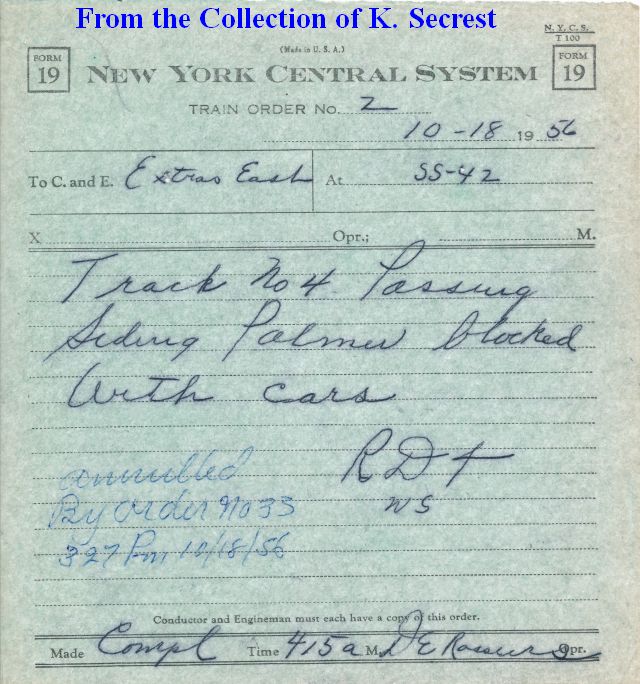 From the Collection of K. Secrest
N.Y.C.S.
T 100
(Made in U.S.A.)
FORM 19
NEW YORK CENTRAL SYSTEM
FORM 19
TRAIN ORDER No. 2
10-18 1956
To C. and E. Extras East At SS-42
X Opr.; M.
Track No 4 Passing
Siding Palmer blocked
With cars
RD
WS
annulled
By order No 33
327 Pm 10/18/56
Conductor and Engineman must each have a copy of this order.
Made Compl Time 415a M. D E Opr.